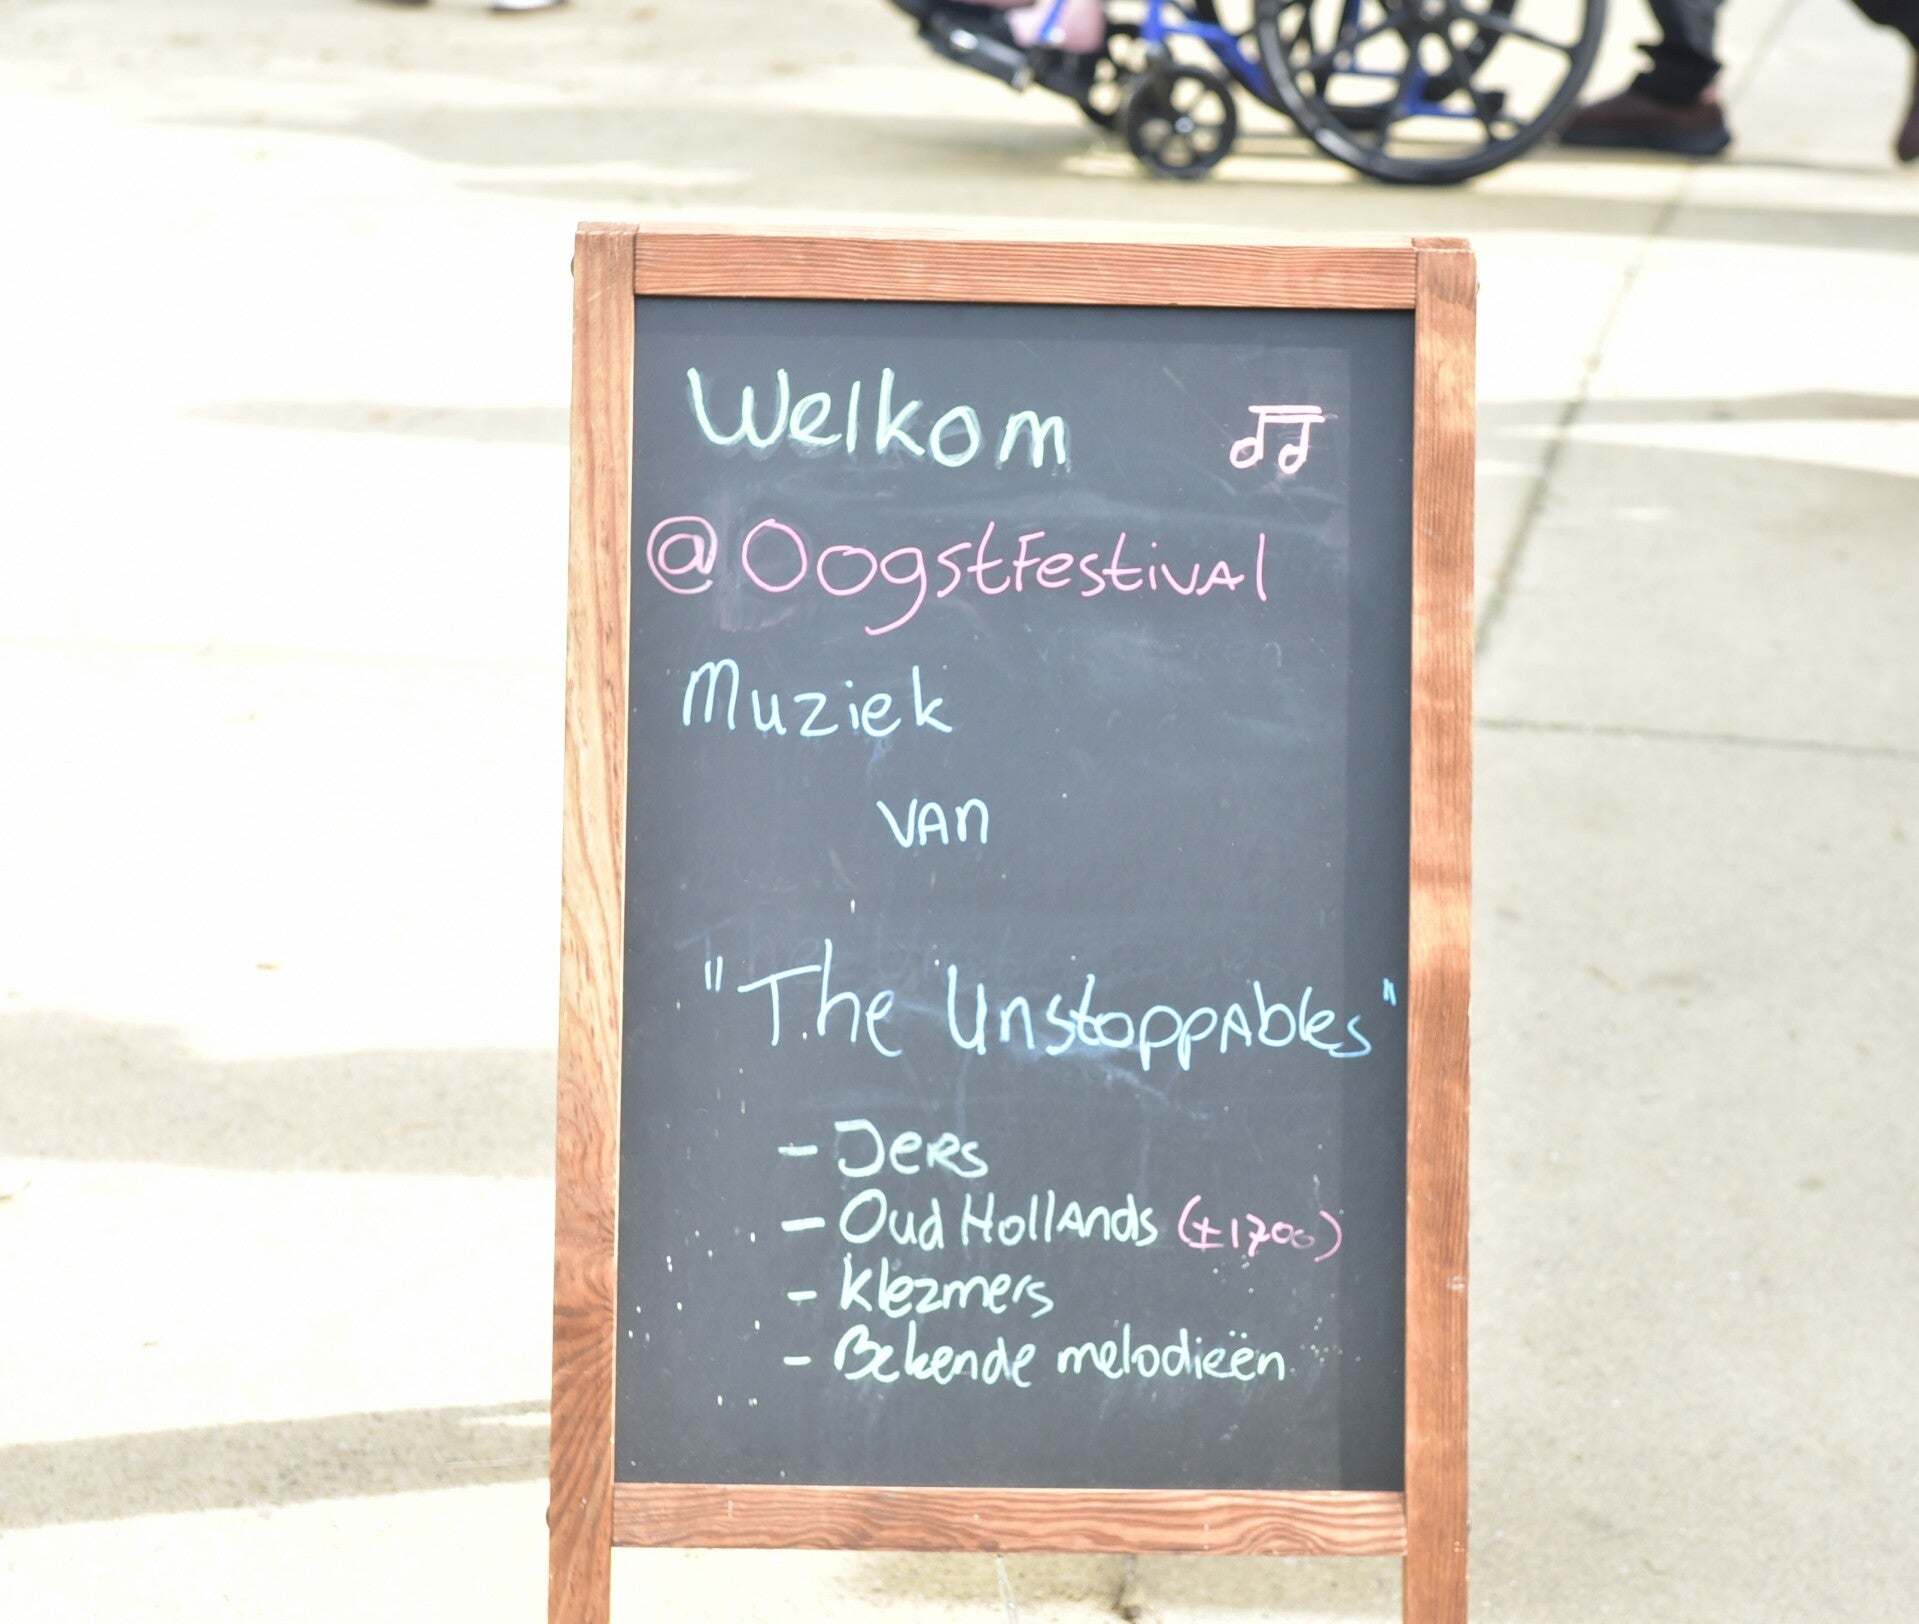 Welkom
@Oogstfestival
Muziek
van
"The Unstoppables"
- Iers
- Oud Hollands (±1700)
- Klezmers
- Bekende melodieën